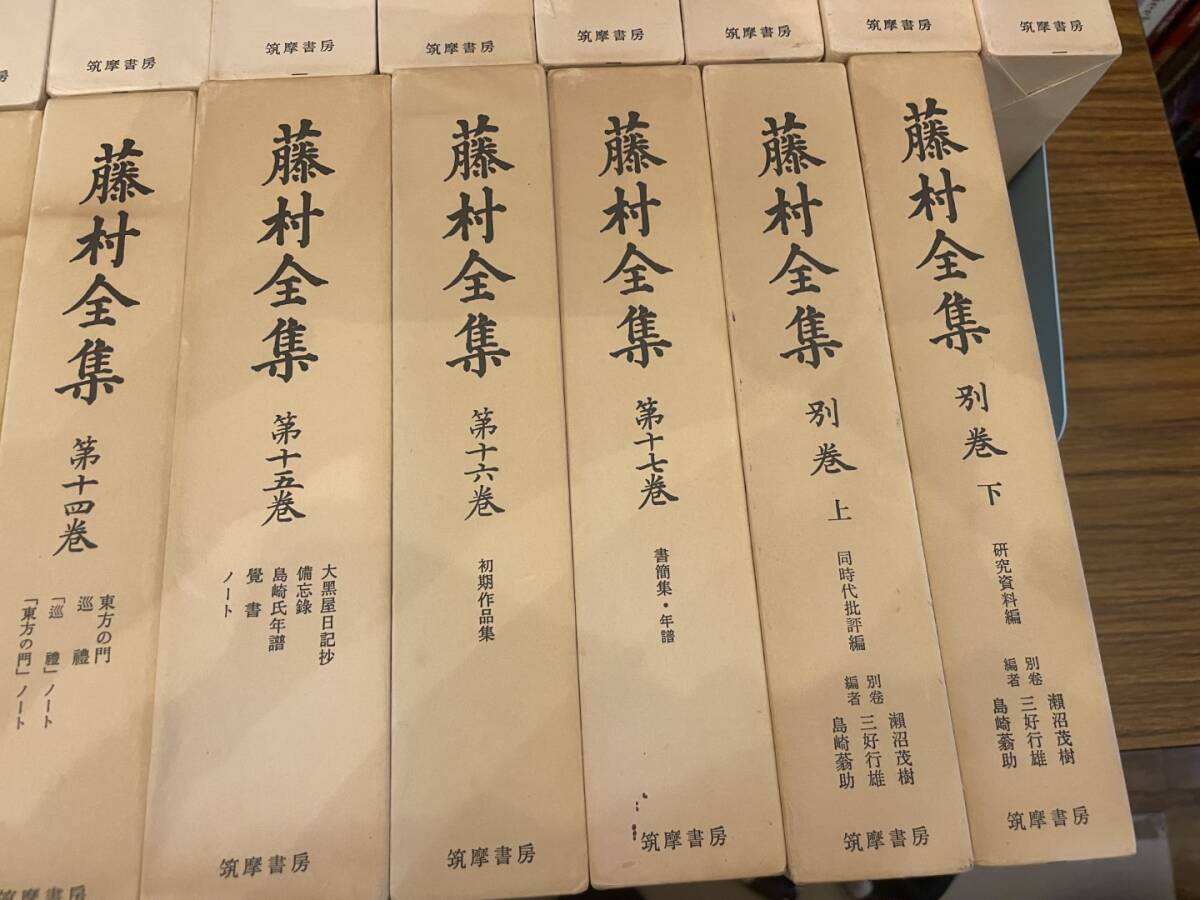 房
筑摩書房
筑摩書房
筑摩書房
筑摩書房
筑摩書房
筑摩書房
筑摩書房
藤村全集
第十四巻
東方の門
巡禮
「巡禮」ノート
「東方の門」ノート
筑摩書房
藤村全集
第十五巻
大黑屋日記抄
備忘錄
島崎氏年譜
覺書
ノート
筑摩書房
藤村全集
第十六巻
初期作品集
筑摩書房
藤村全集
第十七巻
書簡集・年譜
筑摩書房
藤村全集
別巻 上
同時代批評編
別卷編者
瀨沼茂樹
三好行雄
島崎蓊助
筑摩書房
藤村全集
別巻 下
研究資料編
別卷編者
瀨沼茂樹
三好行雄
島崎蓊助
筑摩書房